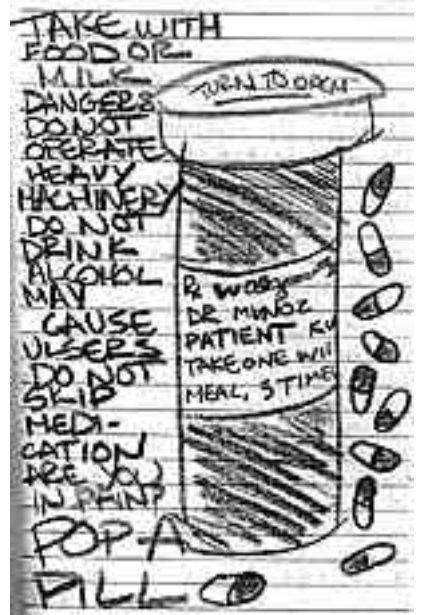 TAKE WITH
FOOD OR
MILK
DANGERS
DO NOT
OPERATE
HEAVY
MACHINERY
DO NOT
DRINK
ALCOHOL
MAY
CAUSE
ULSERS
DO NOT
SKIP
MEDI-
CATION
ARE YOU
IN PAIN?
POP-A
PILL
TURN TO OPEN
Rx
DR MUNOZ
PATIENT
TAKE ONE
MEAL, 3 TIMES